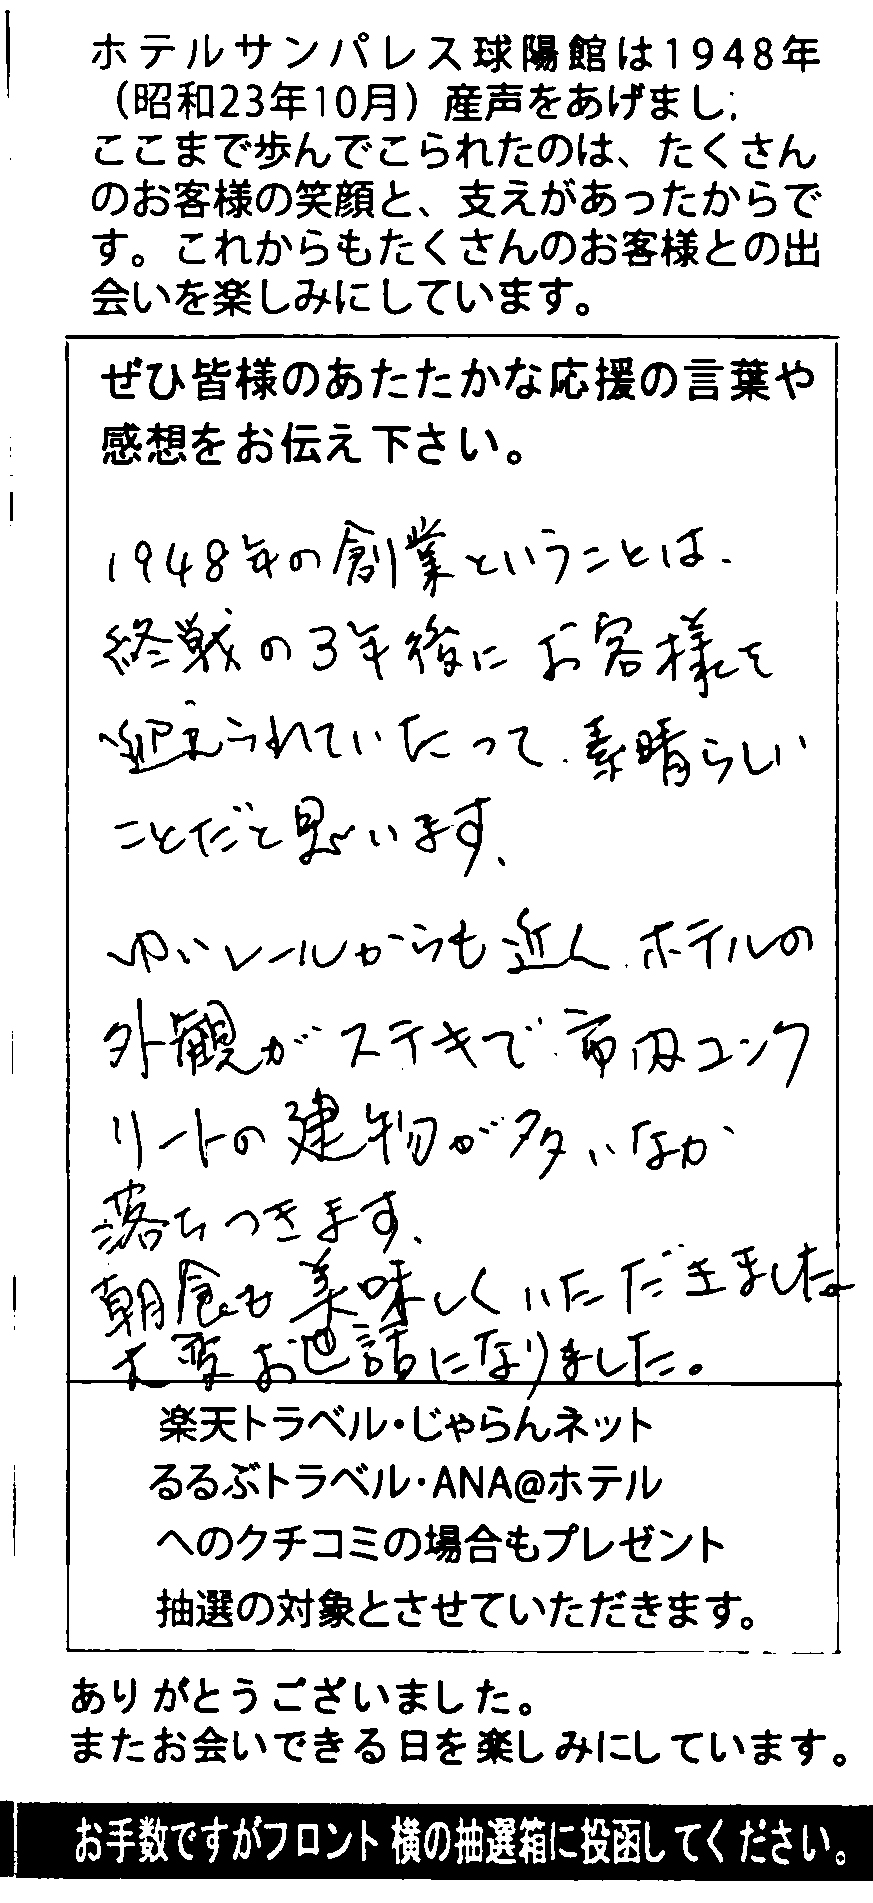 ホテルサンパレス球陽館は1948年
（昭和23年10月）産声をあげまし
ここまで歩んでこられたのは、たくさん
のお客様の笑顔と、支えがあったからで
す。これからもたくさんのお客様との出
会いを楽しみにしています。
ぜひ皆様のあたたかな応援の言葉や
感想をお伝え下さい。
1948年の創業ということは、
終戦の3年後にお客様を
迎えられていたって、素晴らしい
ことだと思います、
ゆいレールからも近く、ホテルの
外観がステキで、市内コンク
リートの建物が多いなか
落ちつきます、
朝食も美味しくいただきました。
大変お世話になりました。
楽天トラベル・じゃらんネット
るるぶトラベル・ANA@ホテル
へのクチコミの場合もプレゼント
抽選の対象とさせていただきます。
ありがとうございました。
またお会いできる日を楽しみにしています。
お手数ですがフロント横の抽選箱に投函してください。